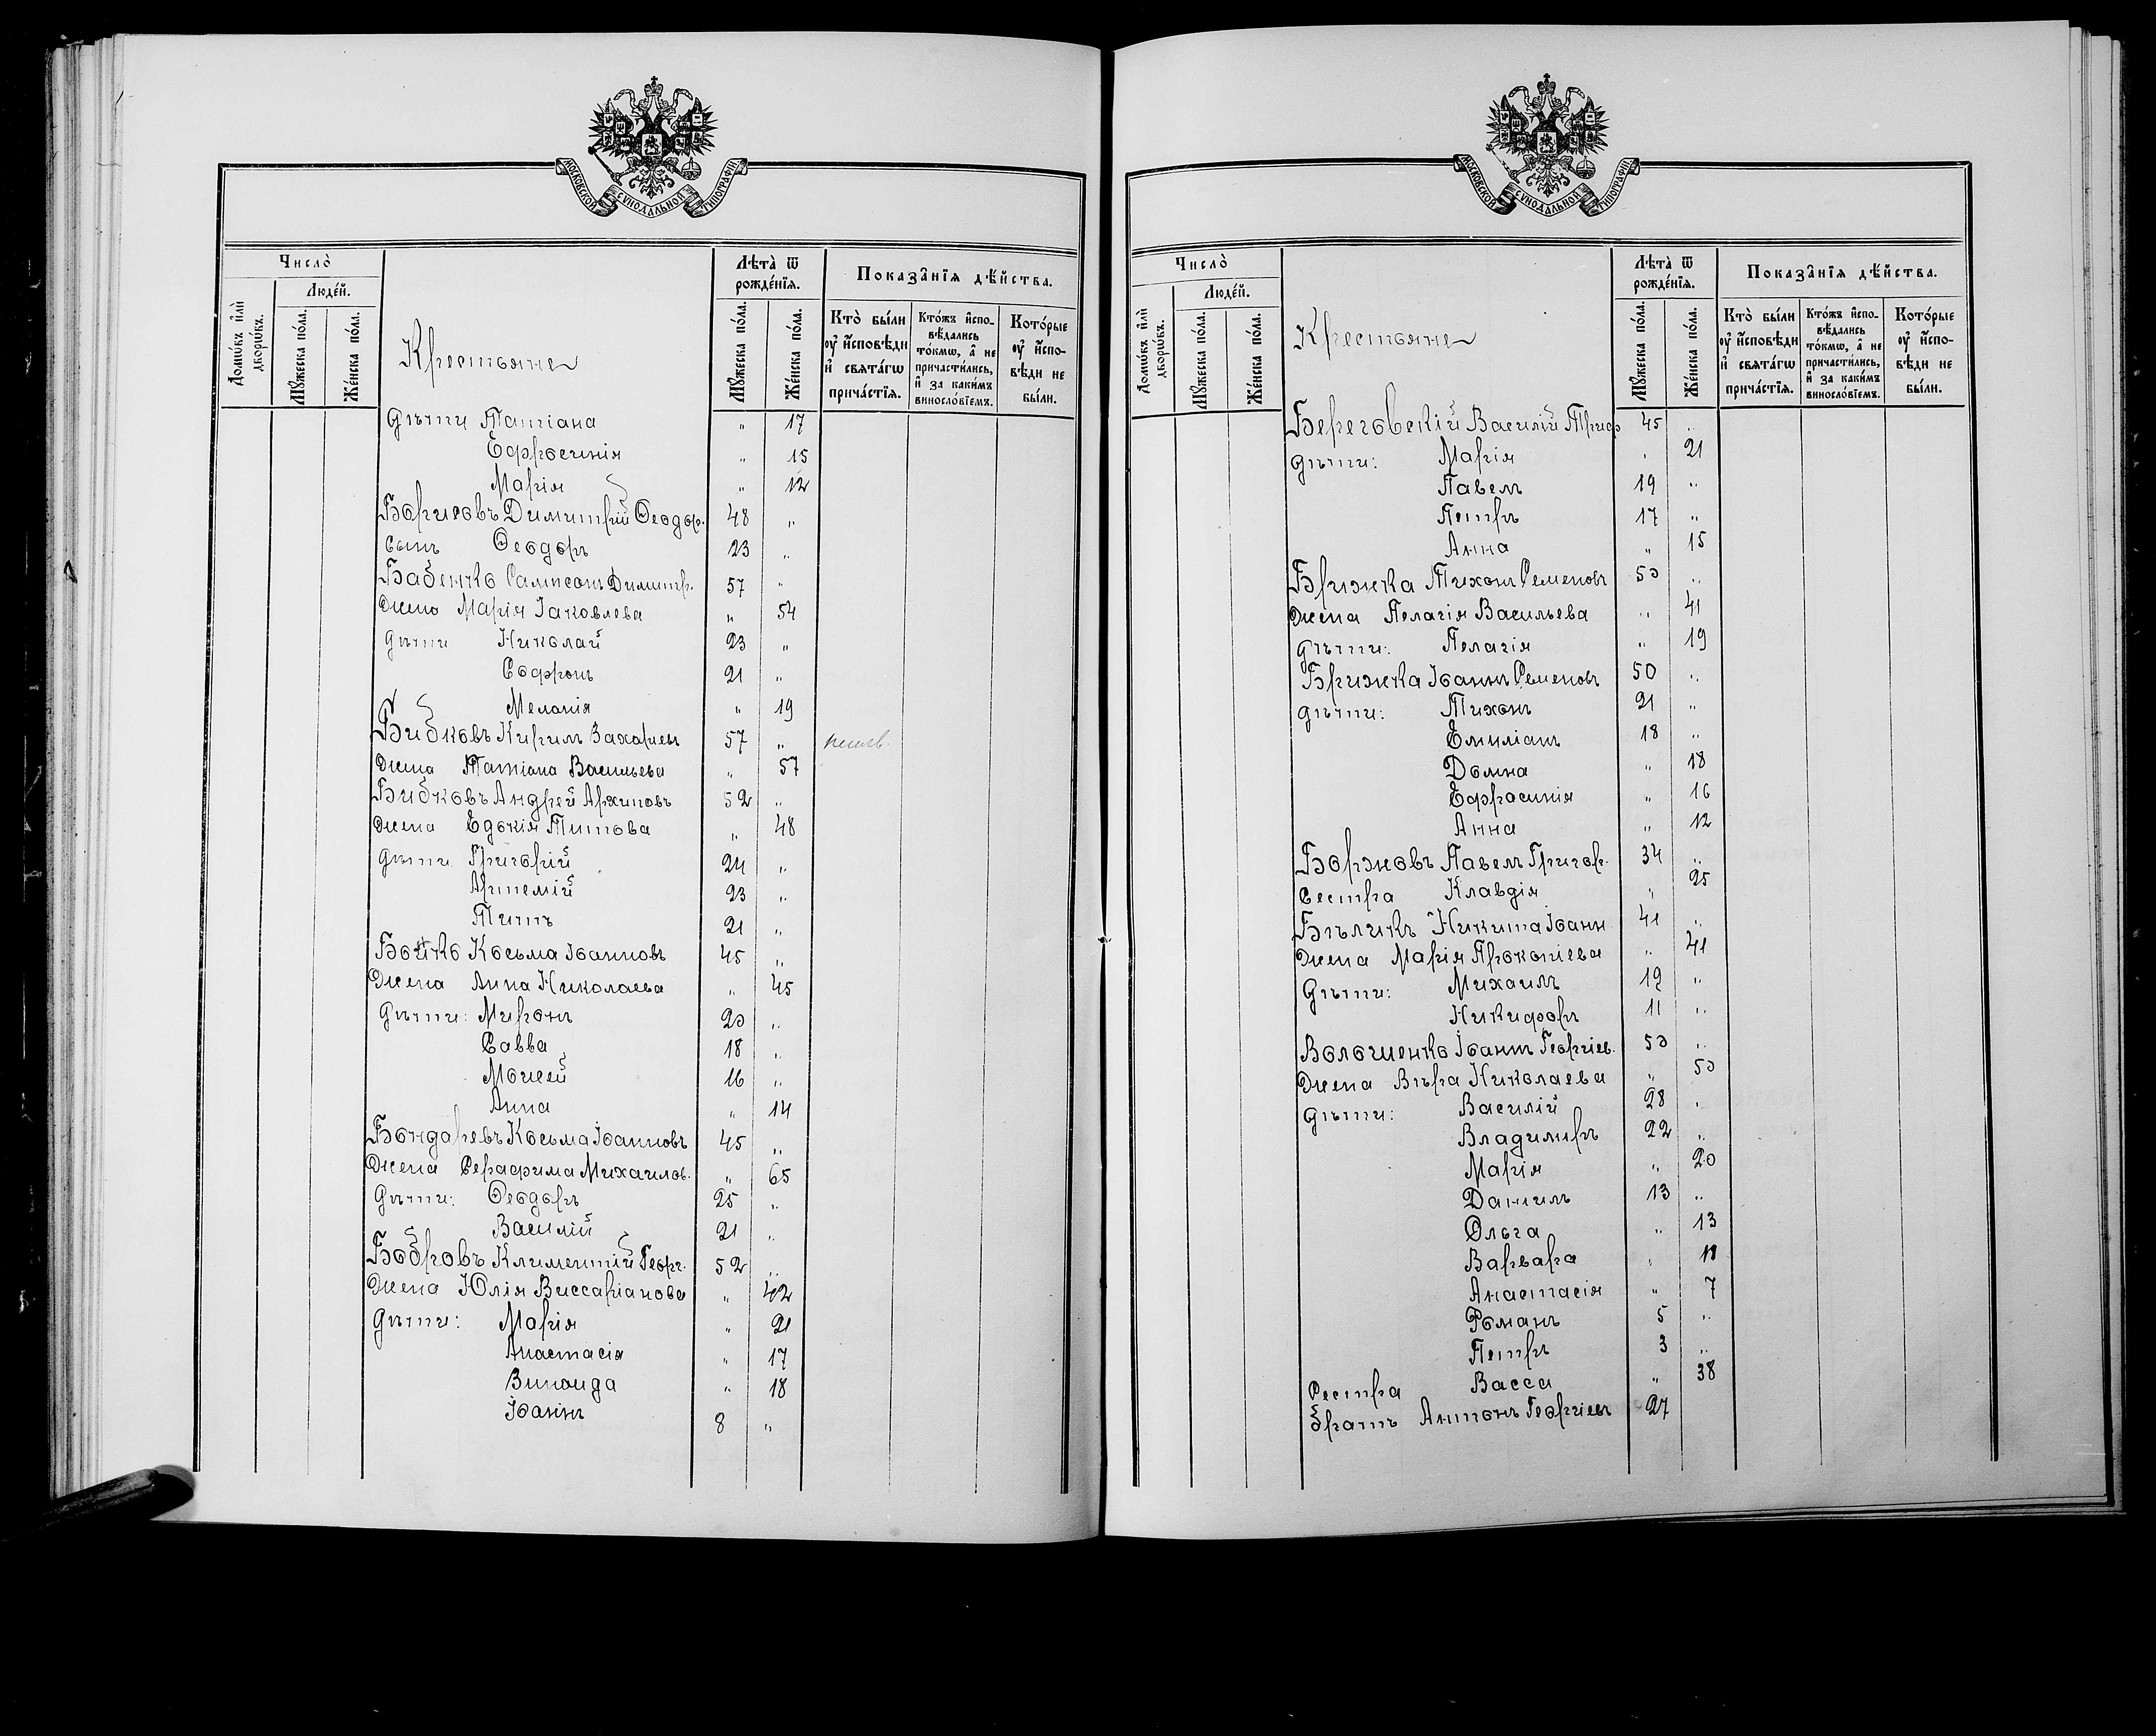 МОСКОВСКОЙ СУНОДАЛЬНОЙ ТИПОГРАФІИ
Число̀
Людéй.
Домѡ́въ и҆лѝ дворѡ́въ.
Мꙋ́жеска по́ла.
Же́нска по́ла.
Крестьяне
Лѣта̀ ѿ рожде́нїѧ.
Мꙋ́жеска по́ла.
Же́нска по́ла.
Показа̑нїѧ дѣ́йства.
Кто̀ бы́ли оу҆ и҆́сповѣди и҆ свѧта́гѡ прича́стїѧ.
Кто́жъ и҆спо-вѣ́дались то́кмѡ, а҆ не причасти́лись, и҆ за каки́мъ винослов́їемъ.
Кото́рые оу҆ и҆́спо-вѣди не бы́ли.
Дѣти Татіана " 17
Ефросинія " 15
Марія " 12
Борисовъ Димитрій Ѳеодор. 48 "
сынъ Ѳеодоръ 23 "
Бабенко Сампсонъ Димитр. 57 "
Жена Марія Іаковлева " 54
Дѣти Николай 23 "
Софронъ 21 "
Меланія " 19
Бибковъ Кирилъ Захаріевъ 57 "
Жена Татіана Васильева " 57
Бибковъ Андрей Архиповъ 52 "
Жена Едокія Титова " 48
Дѣти Григорій 24 "
Артемій 23 "
Титъ 21 "
Бойко Косьма Іоанновъ 45 "
Жена Анна Николаева " 45
Дѣти: Миронъ 20 "
Савва 18 "
Моисей 16 "
Анна " 14
Бондаревъ Косьма Іоанновъ 45 "
Жена Серафима Михаилов. " 65
Дѣти: Ѳеодоръ 25 "
Василій 21 "
Бобровъ Климентій Георг. 52 "
Жена Юлія Виссаріанова " 42
Дѣти: Марія " 21
Анастасія " 17
Зинаида " 18
Іоаннъ 8 "
МОСКОВСКОЙ СУНОДАЛЬНОЙ ТИПОГРАФІИ
Число̀
Людéй.
Домѡ́въ и҆лѝ дворѡ́въ.
Мꙋ́жеска по́ла.
Же́нска по́ла.
Крестьяне
Лѣта̀ ѿ рожде́нїѧ.
Мꙋ́жеска по́ла.
Же́нска по́ла.
Показа̑нїѧ дѣ́йства.
Кто̀ бы́ли оу҆ и҆́сповѣди и҆ свѧта́гѡ прича́стїѧ.
Кто́жъ и҆спо-вѣ́дались то́кмѡ, а҆ не причасти́лись, и҆ за каки́мъ винослов́їемъ.
Кото́рые оу҆ и҆́спо-вѣди не бы́ли.
Береговскій Василій Триф 45 "
Дѣти: Марія " 21
Павелъ 19 "
Петръ 17 "
Анна " 15
Брижка Тихонъ Семеновъ 50 "
Жена Пелагія Васильева " 41
Дѣти: Пелагія " 19
Брижка Іоаннъ Семеновъ 50 "
Дѣти: Тихонъ 21 "
Емиліанъ 18 "
Домна " 18
Ефросинія " 16
Анна " 12
Борзковъ Павелъ Григор. 34 "
Сестра Клавдія " 25
Бѣликъ Никита Іоанн 41 "
Жена Марія Прокопіева " 41
Дѣти: Михаилъ 19 "
Никифоръ 11 "
Волошенко Іоаннъ Георгіев. 50 "
Жена Вѣра Николаева " 50
Дѣти: Василій 28 "
Владимиръ 22 "
Марія " 20
Даниилъ 13 "
Ольга " 13
Варвара " 11
Анастасія " 7
Романъ 5 "
Петръ 3 "
Сестра Васса " 38
братъ Антонъ Георгіевъ 27